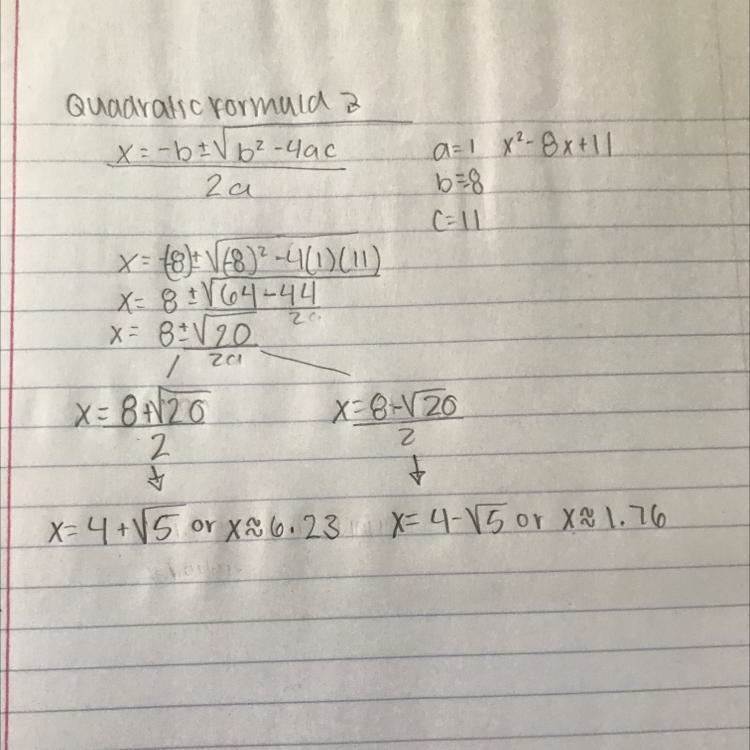 Quadratic Formula 2
x = -b ± √b² - 4ac a=1 x² - 8x + 11
2a b=8
c=11
x = (-8) ± √(-8)² - 4(1)(11)
x = 8 ± √64 - 44
2a
x = 8 ± √20
2a
x = 8 + √20 x = 8 - √20
2 2
x = 4 + √5 or x ≈ 6.23 x = 4 - √5 or x ≈ 1.76